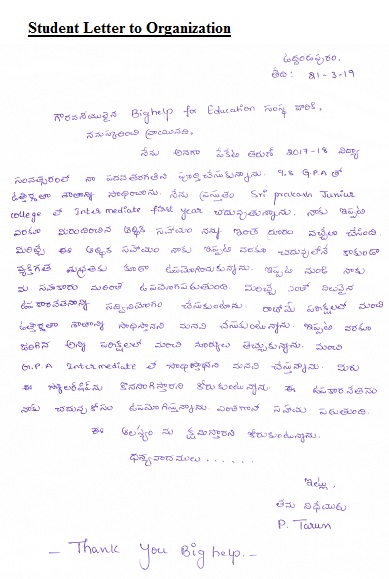 Student Letter to Organization
ఉద్దండపురం,
తేది: 21-3-19
గౌరవనీయులైన Bighelp for Education సంస్థ వారికి,
నమస్కరించి వ్రాయునది,
నేను అనగా పేకేటి తరుణ్ 2017-18 విద్యా
సంవత్సరంలో నా పదవతరగతిని పూర్తి చేసుకున్నాను. 9.8 G.P.A తో
ఉత్తీర్ణతా శాతాన్ని సాధించాను. నేను ప్రస్తుతం Sri prakash Junior
college లో Intermediate first year చదువుతున్నాను. నాకు ఇప్పటి
వరకూ మీరందించిన ఆర్థిక సహాయం నన్ను ఇంత దూరం వచ్చేలా చేసింది.
మీరిచ్చే ఈ ఆర్థిక సహాయం నాకు ఇప్పటి వరకూ చదువులోనే కాకుండా
వ్యక్తిగత కూడా ఉపయోగించుకున్నాను. ఇప్పటి నుండి నాకు
మీ సహకారం మరింత ఉపయోగపడుతుంది. మీరిచ్చే ఎంతో విలువైన
ఉపకారవేతనాన్ని సద్వినియోగం చేసుకుంటాను. రాబోయే పరీక్షలలో మంచి
ఉత్తీర్ణతా శాతాన్ని సాధిస్తానని మనవి చేసుకుంటున్నాను. ఇప్పటి వరకూ
జరిగిన అన్ని పరీక్షలలో మంచి మార్కులు తెచ్చుకున్నాను. మంచి
G.P.A Intermediate లో సాధిస్తానని మనవి చేస్తున్నాను. మీరు
ఈ స్కాలర్‌షిప్‌ను కొనసాగిస్తారని కోరుకుంటున్నాను. ఈ ఉపకారవేతనం
నాకు చదువు కోసం ఉపయోగిస్తున్నాను. ఎంతగానో సహాయ పడుతుంది.
ఈ ఆలస్యం ను క్షమిస్తారని కోరుకుంటున్నాను.
ధన్యవాదములు ......
ఇట్లు,
తమ విధేయుడు
P. Tarun
- Thank You Bighelp. -